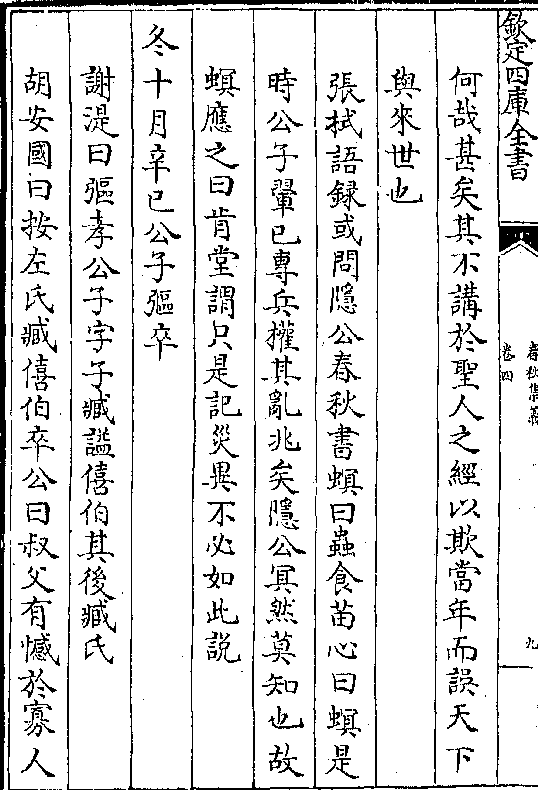 欽定四庫全書
春秋集義
卷四
九
何哉甚矣其不講於聖人之經以欺當年而誤天下
與來世也
張栻語録或問隱公春秋書螟曰蟲食苗心曰螟是
時公子翬已專兵權其亂兆矣隱公冥然莫知也故
螟應之曰肯堂謂只是記災異不必如此説
冬十月辛巳公子彄卒
謝湜曰彄孝公子字子臧謚僖伯其後臧氏
胡安國曰按左氏臧僖伯卒公曰叔父有憾於寡人